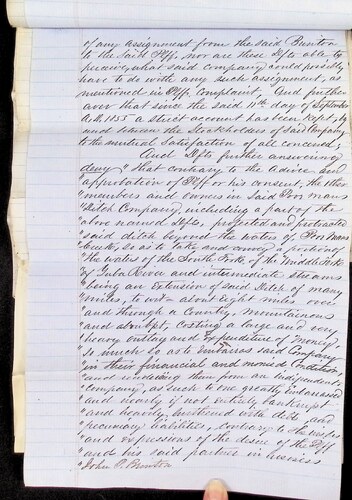 of any assignment from the said Bunton
to the said Plff, nor are these Defts able to
perceive what said Company could possibly
have to do with any such assignment, as
mentioned in Plffs Complaint, and further
aver that since the said 11th day of September
A.D. 1855 a strict account has been kept, by
and between the Stockholders of said Company
to the mutual satisfaction of all concerned;
And Defts further answering
deny "That contrary to the advice and
"approbation of Plff or his consent, the other
"members and owners in said Poor mans
"Ditch Company, including a part of the
"above named Defts, projected and protracted
"said ditch beyond the waters of Poor Mans
"Creek, so as to take and convey a portion of
"the waters of the South Fork, of the Middle Fork
"of Yuba River and intermediate streams
"being an Extension of said Ditch of many
"miles, to wit about Eight miles over
"and through a Country, mountainous
"and abrupt, costing a large and very
"heavy outlay and expenditure of money,
"so much so as to embarrass said Company
"in their financial and monied Condition,
"and rendering them from an independent
"Company, as such to one greatly embarrassed
"and nearly if not entirely bankrupt
"and heavily burthened with debt and
"pecuniary liabilities, contrary to the wishes
"and expressions of the desire of the Plff
"and his said partner in interest
"John P. Bunton